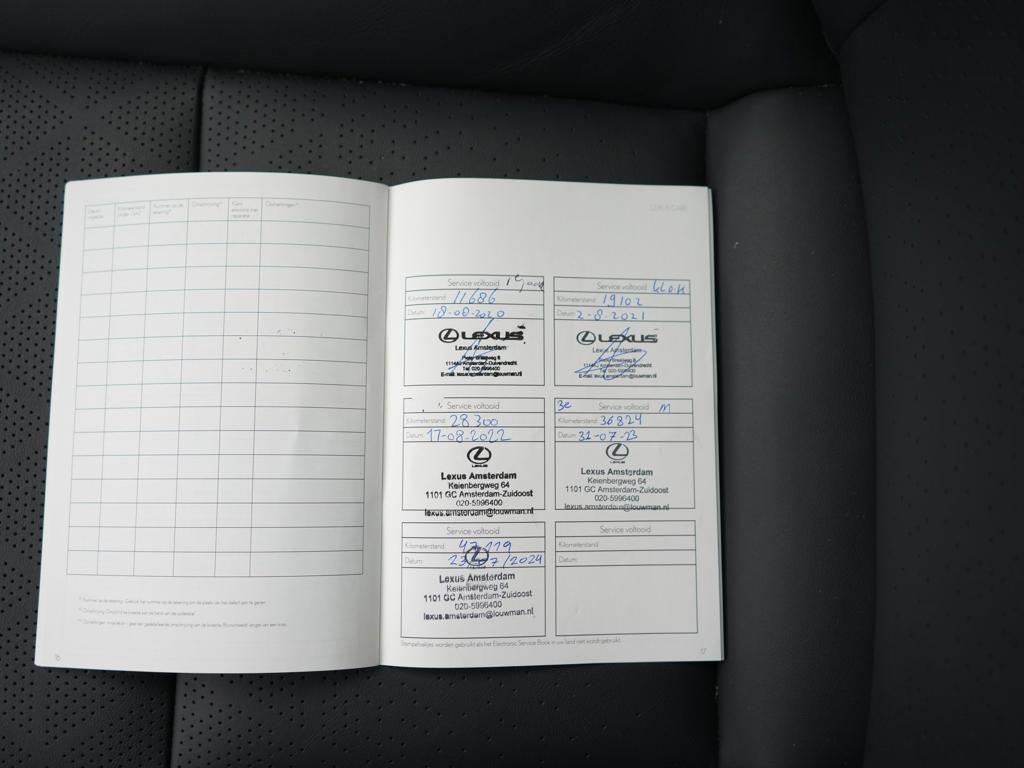 Datum
Kilometerstand
Nummer op de tekening*)
Omschrijving**)
Klant akkoord met reparatie
Opmerkingen***)
16
LEXUS CARE
Service voltooid
Kilometerstand: 11686
Datum: 18-08-2020
LEXUS
Lexus Amsterdam
1114AJ Amsterdam-Duivendrecht
Tel. 020-5996400
E-mail: lexus.amsterdam@louwman.nl
Service voltooid
Kilometerstand: 19102
Datum: 2-8-2021
LEXUS
Lexus Amsterdam
1114AJ Amsterdam-Duivendrecht
Tel. 020-5996400
E-mail: lexus.amsterdam@louwman.nl
Service voltooid
Kilometerstand: 28300
Datum: 17-08-2022
LEXUS
Lexus Amsterdam
Keienbergweg 64
1101 GC Amsterdam-Zuidoost
020-5996400
lexus.amsterdam@louwman.nl
3e Service voltooid M
Kilometerstand: 36824
Datum: 31-07-23
LEXUS
Lexus Amsterdam
Keienbergweg 64
1101 GC Amsterdam-Zuidoost
020-5996400
lexus.amsterdam@louwman.nl
Service voltooid
Kilometerstand: 47119
Datum: 23/07/2024
Lexus Amsterdam
Keienbergweg 64
1101 GC Amsterdam-Zuidoost
020-5996400
lexus.amsterdam@louwman.nl
Service voltooid
Kilometerstand:
Datum:
Stempelvakjes worden gebruikt als het Electronic Service Book in uw land niet wordt gebruikt.
17